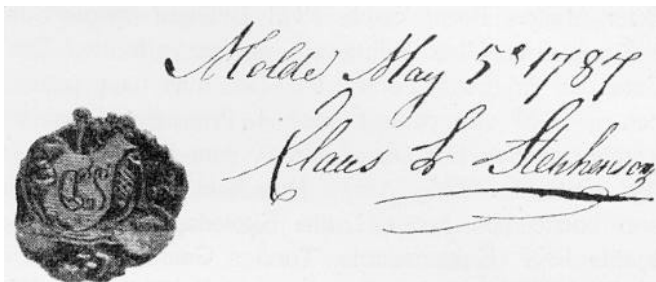 Molde May 5ᵉ 1787
Claus L Stephenson